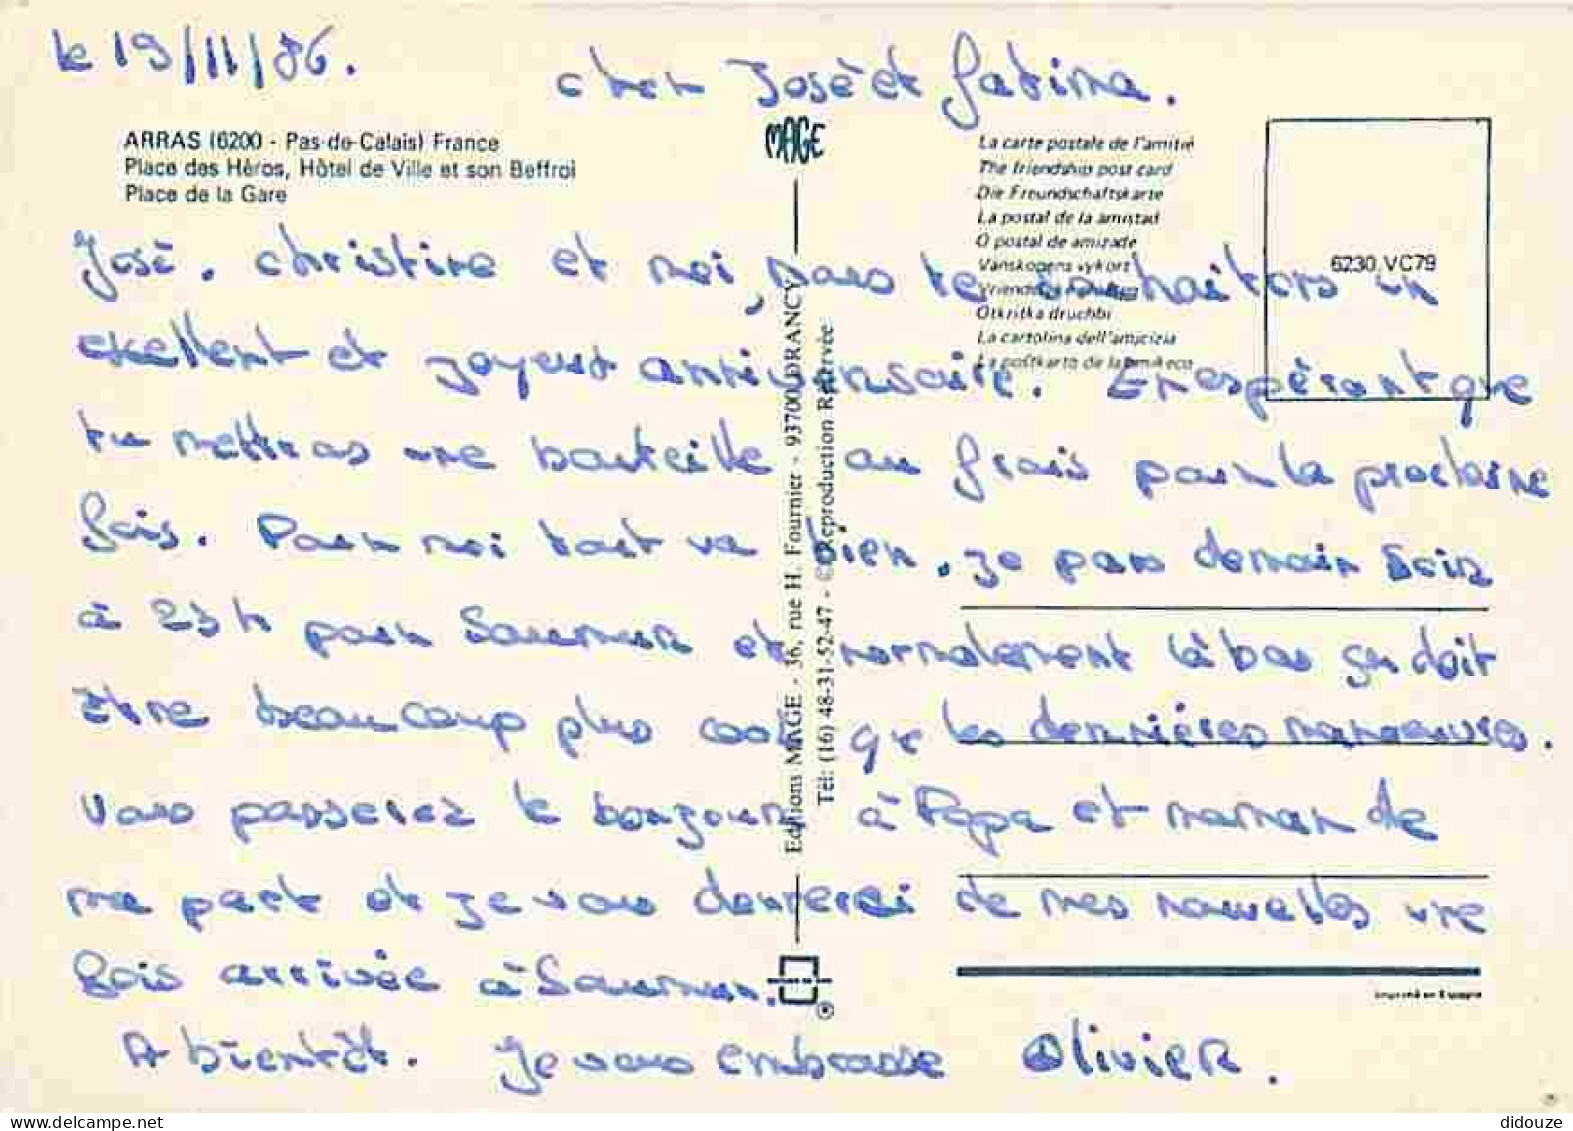 le 19/11/86.
cher José et Fatima.
MAGE
ARRAS (6200 - Pas-de-Calais) France
Place des Héros, Hôtel de Ville et son Beffroi
Place de la Gare
La carte postale de l'amitié
The friendship post card
Die Freundschaftskarte
La postal de la amistad
O postal de amizade
Vänskapens vykort
Otkritka druchbi
La cartolina dell'amicizia
La postkarto de la amikeco
6230 VC79
José. christine et moi, nous te souhaitons un
exellent et joyeux anniversaire. En espérant que
tu mettras une bouteille au frais pour la prochaine
fois. Pour moi tout va bien. je pars demain soir
à 23 h pour Saumur et normalement là bas ça doit
être beaucoup plus cool que les dernières manoeuvres.
Vous passerez le bonjour à Papa et maman de
ma part et je vous donnerai de mes nouvelles une
fois arrivée à Saumur.
A bientôt. Je vous embrasse Olivier.
Editions MAGE - 36, rue H. Fournier - 93700 DRANCY
Tél: (16) 48-31-52-47 - Reproduction Réservée
Imprimé en Espagne
didouze